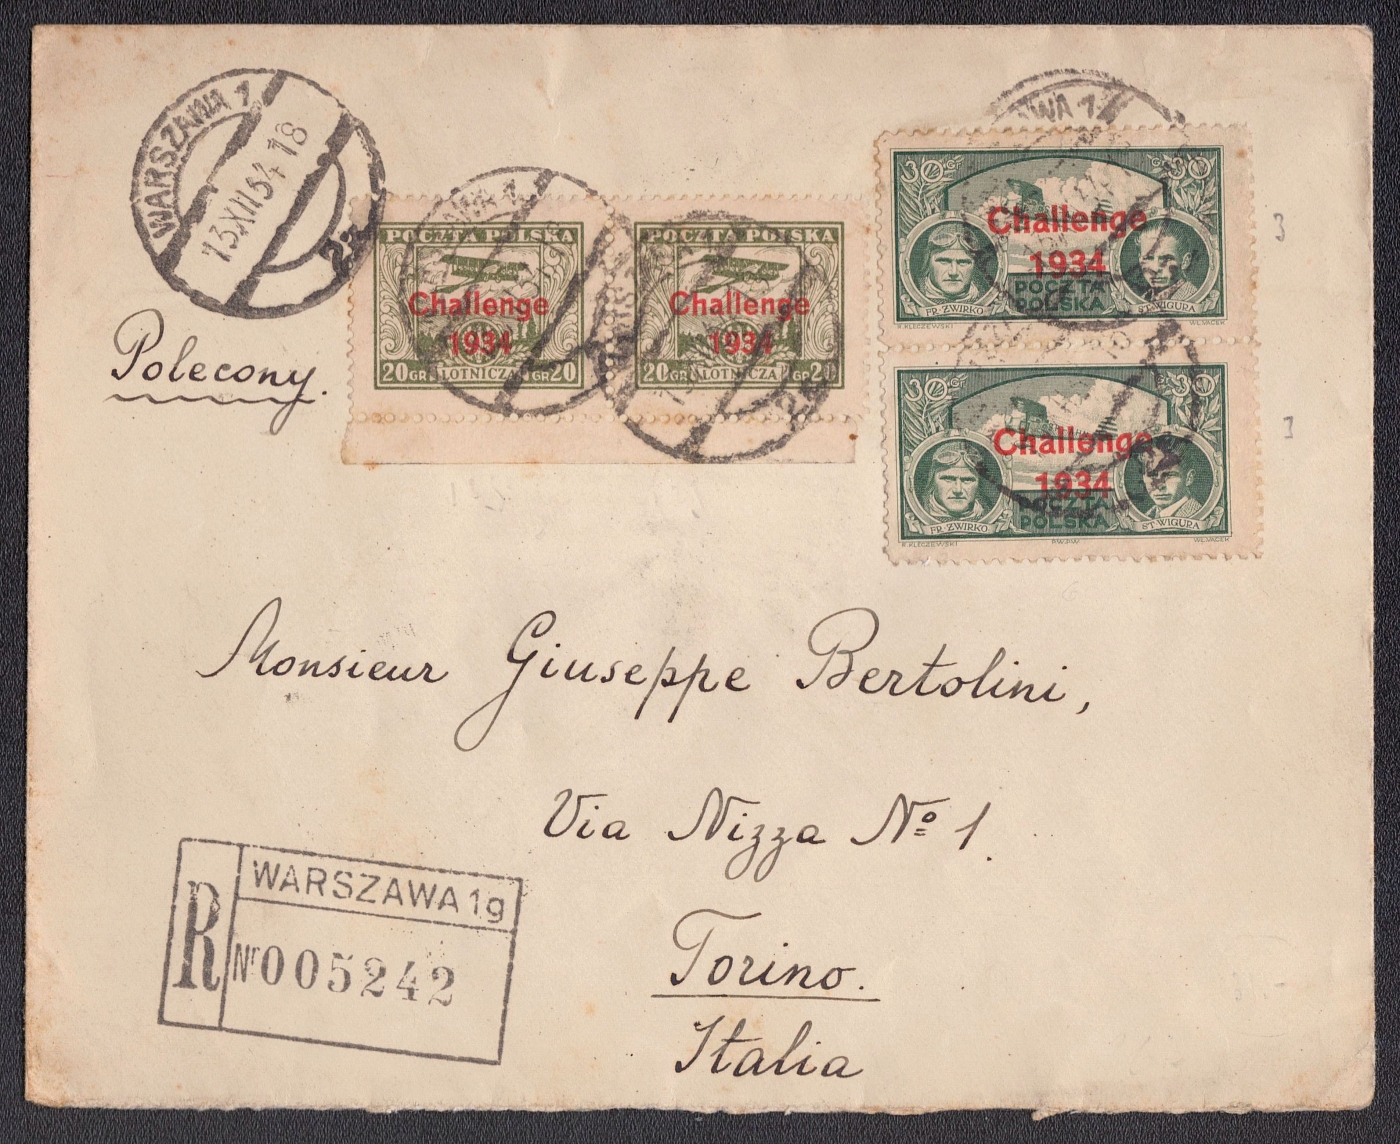 WARSZAWA 1
13.XII.34.18
2a
Polecony.
POCZTA POLSKA
Challenge
1934
20 GR LOTNICZA GR 20
POCZTA POLSKA
Challenge
1934
20 GR LOTNICZA GR 20
WARSZAWA 1
30 GR GR 30
Challenge
1934
POCZTA
POLSKA
FR·ŻWIRKO ST·WIGURA
R.KLECZEWSKI WŁ.VACEK
30 GR GR 30
Challenge
1934
POCZTA
POLSKA
FR·ŻWIRKO ST·WIGURA
R.KLECZEWSKI PWPW WŁ.VACEK
3
3
Monsieur Giuseppe Bertolini,
Via Nizza Nº 1.
Torino.
Italia
R
WARSZAWA 1g
Nr 005242